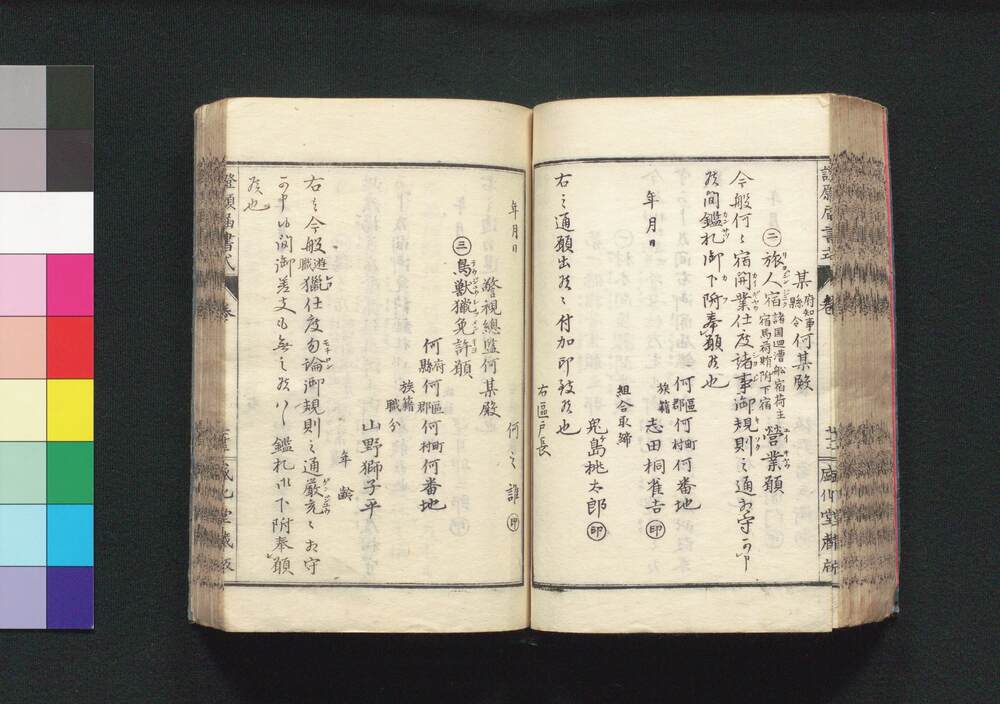 某府知事縣令何某殿
㊁旅人宿諸国廻漕船宿荷主宿馬荷賄附下宿營業願
今般何々宿開業仕度諸事御規則之通相守可申
候間鑑札御下附奉願候也
何區郡何町村何番地
族籍
志田桐雀吉㊞
年月日
組合取締
児島桃太郎㊞
右之通願出候ニ付加印致候也
右區戸長
何之誰㊞
年月日
警視總監何某殿
㊂鳥獣猟免許願
何府縣何區郡何町村何番地
族籍
職分
山野獅子平
年齢
右之今般遊職猟仕度勿論御規則之通厳重ニ相守
可申候間御差支も無之候ハヽ鑑札御下附奉願
候也